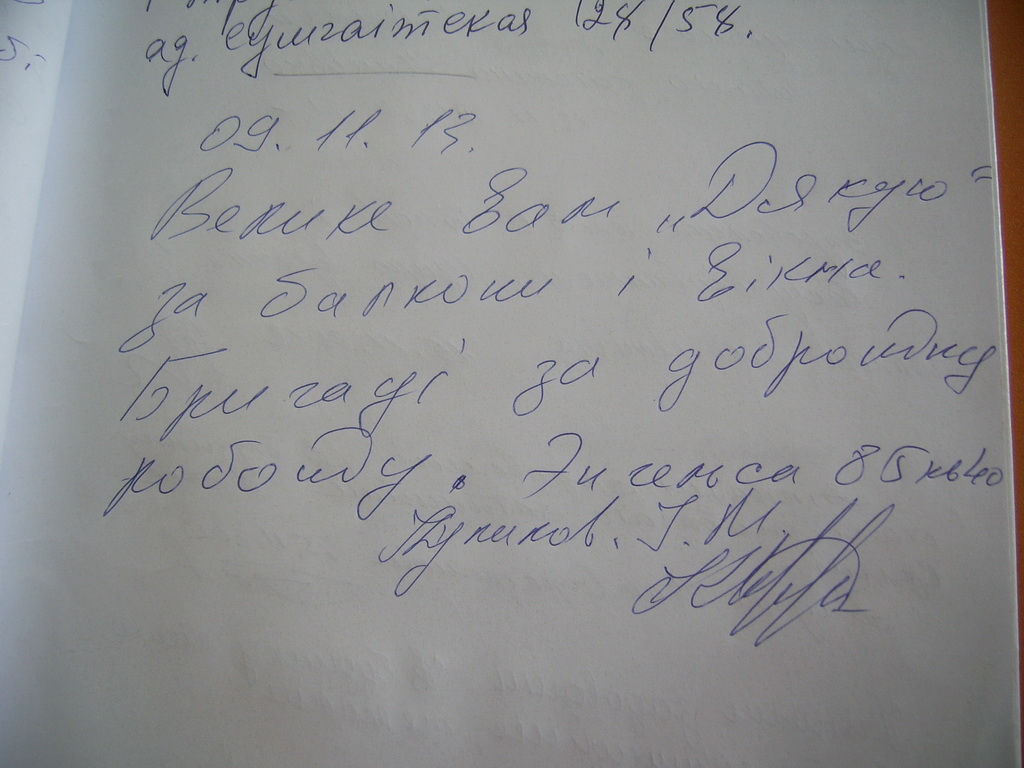 ад. сумгаітская 28/58.
09.11.13.
Велике Вам „Дякую"
за балкони і вікна.
Бригаді за добротну
роботу. Энгельса 85 кв 40
І.М.